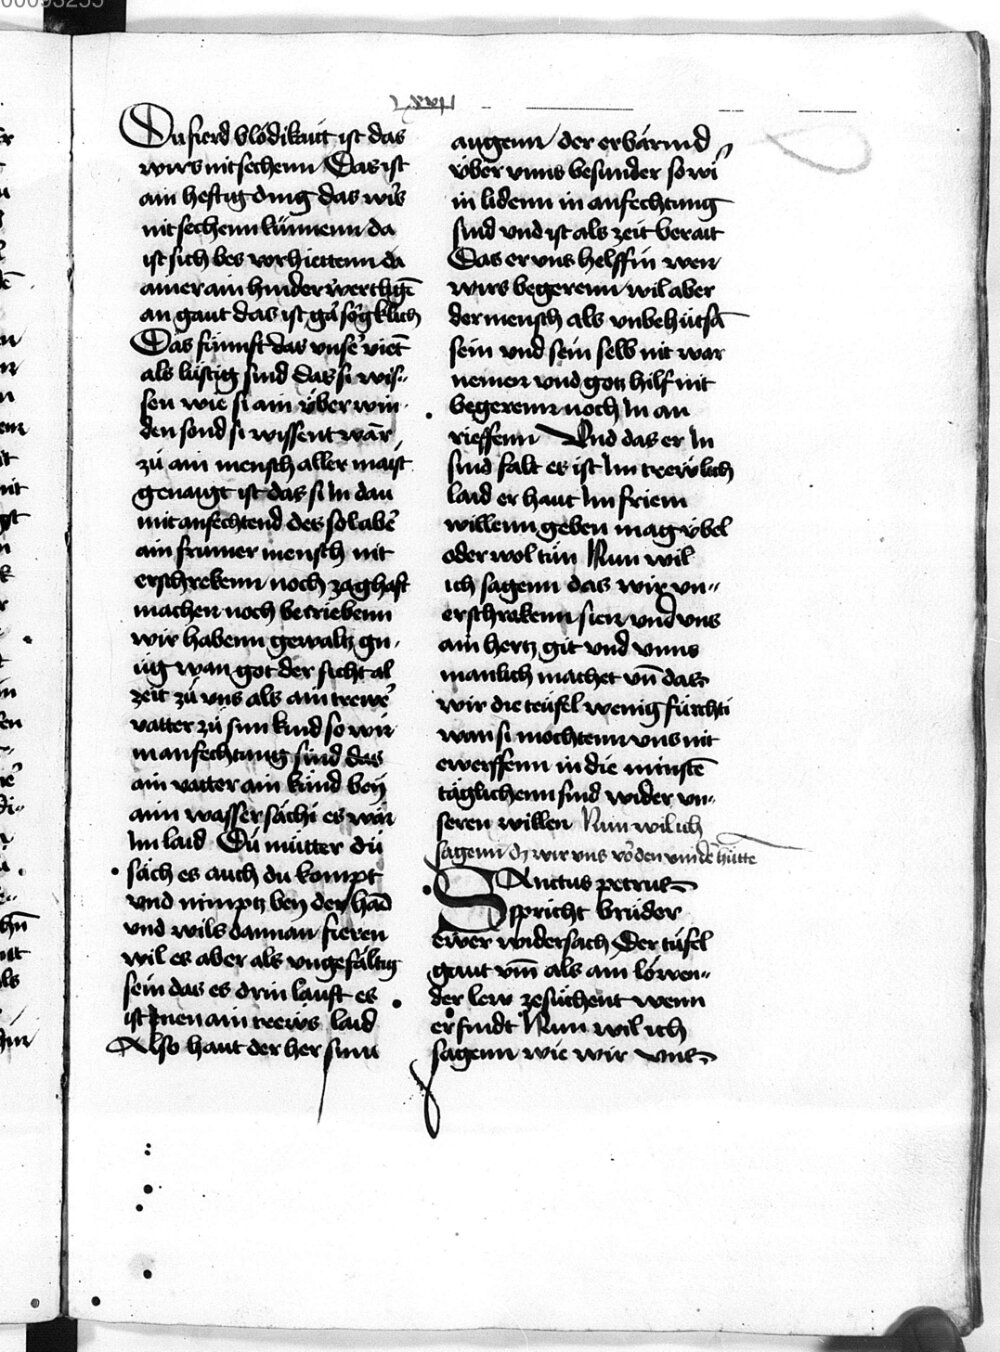 Lxxvi
Du fierd blödikait ist das
wirs nit sechenn Das ist
ain heftig ding das wirs
nit sechenn künnenn da
ist sich bes vor hiettenn da
ainer ain hinderwertlige͂
an gaut das ist gar sorgklich
Das fünnft das vnser vient
als lüstig sind das si wis-
sen wie si ain über win-
den sond si wissent war
zü ain mensch aller maist
genaigt ist das si In dan
mit anfechtend des sol abe͂
ain frumer mensch nit
erschrekenn noch zaghaft
machen noch betriebenn
wir habenn gewaltz gn-
üg wan got der sicht al
zeit zü vns als ain trewer
vatter zü sim kind so wir
in anfechtung sind das
ain vatter ain kind bey
aim wasser sächi es wär
Im laid Dü mütter dü
säch es auch du kompt
vnd nimptz bey der had
vnd wils dannan fieren
wil es aber als vngefältig
sein das es drin lauft es
ist Inen ain trews laid
Also haut der her sinn
augenn der erbärmd
über vnns besunder so wir
in lidenn in anfechtung
sind vnd ist als zeit berait
Das er vns helffin wen
wirs begerenn wil aber
der mensch als vnbehütsa͂
sein vnd sein selb nit war
nemen vnd gotz hilf nit
begerenn noch In an
rieffenn Vnd das er In
sind falt es ist Im trewlich
laid er haut Im friem
willenn geben mag übel
oder wol tün Nun wil
ich sagenn das wir vn-
erschrakenn sien vnd vns
ain hertz git vnd vnns
manlich machet vn͂ das
wir die teüfel wenig fürchti
wan si mochtenn vns nit
ewerffenn in die minste͂
täglichenn sind wider vn-
seren willen Nun wil ich
sagenn dz wir vns vo͂ den vinde͂ hütte͂
Sanctus petrus
spricht brüder
ewer widersach Der tüfel
gaut vm͂ als ain löwen-
der lew ze süchent wenn
er findt Nun wil ich
sagenn wie wir vns